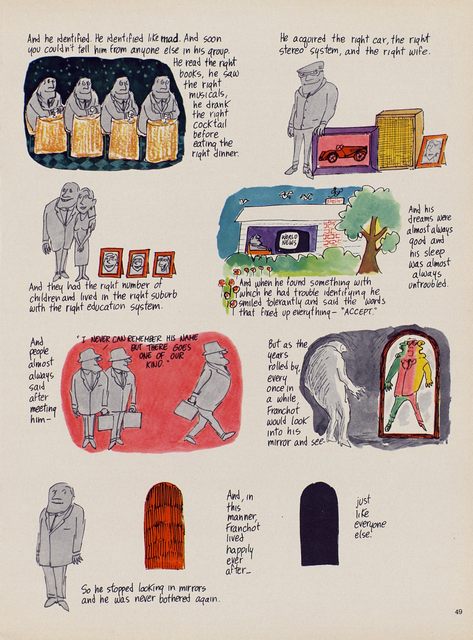 And he identified. He identified like mad. And soon
you couldn't tell him from anyone else in his group.
He read the right
books, he saw
the right
musicals,
he drank
the right
cocktail
before
eating the
right dinner.
He acquired the right car, the right
stereo system, and the right wife.
And they had the right number of
children and lived in the right suburb
with the right education system.
WORLD
NEWS
And when he found something with
which he had trouble identifying he
smiled tolerantly and said the words
that fixed up everything— "ACCEPT."
And his
dreams were
almost always
good and
his sleep
was almost
always
untroubled.
And
people
almost
always
said
after
meeting
him—
"I NEVER CAN REMEMBER HIS NAME
BUT THERE GOES
ONE OF OUR
KIND."
But as the
years
rolled by,
every
once in
a while,
Franchot
would look
into his
mirror and see—
So he stopped looking in mirrors
and he was never bothered again.
And, in
this
manner,
Franchot
lived
happily
ever
after—
just
like
everyone
else.
49